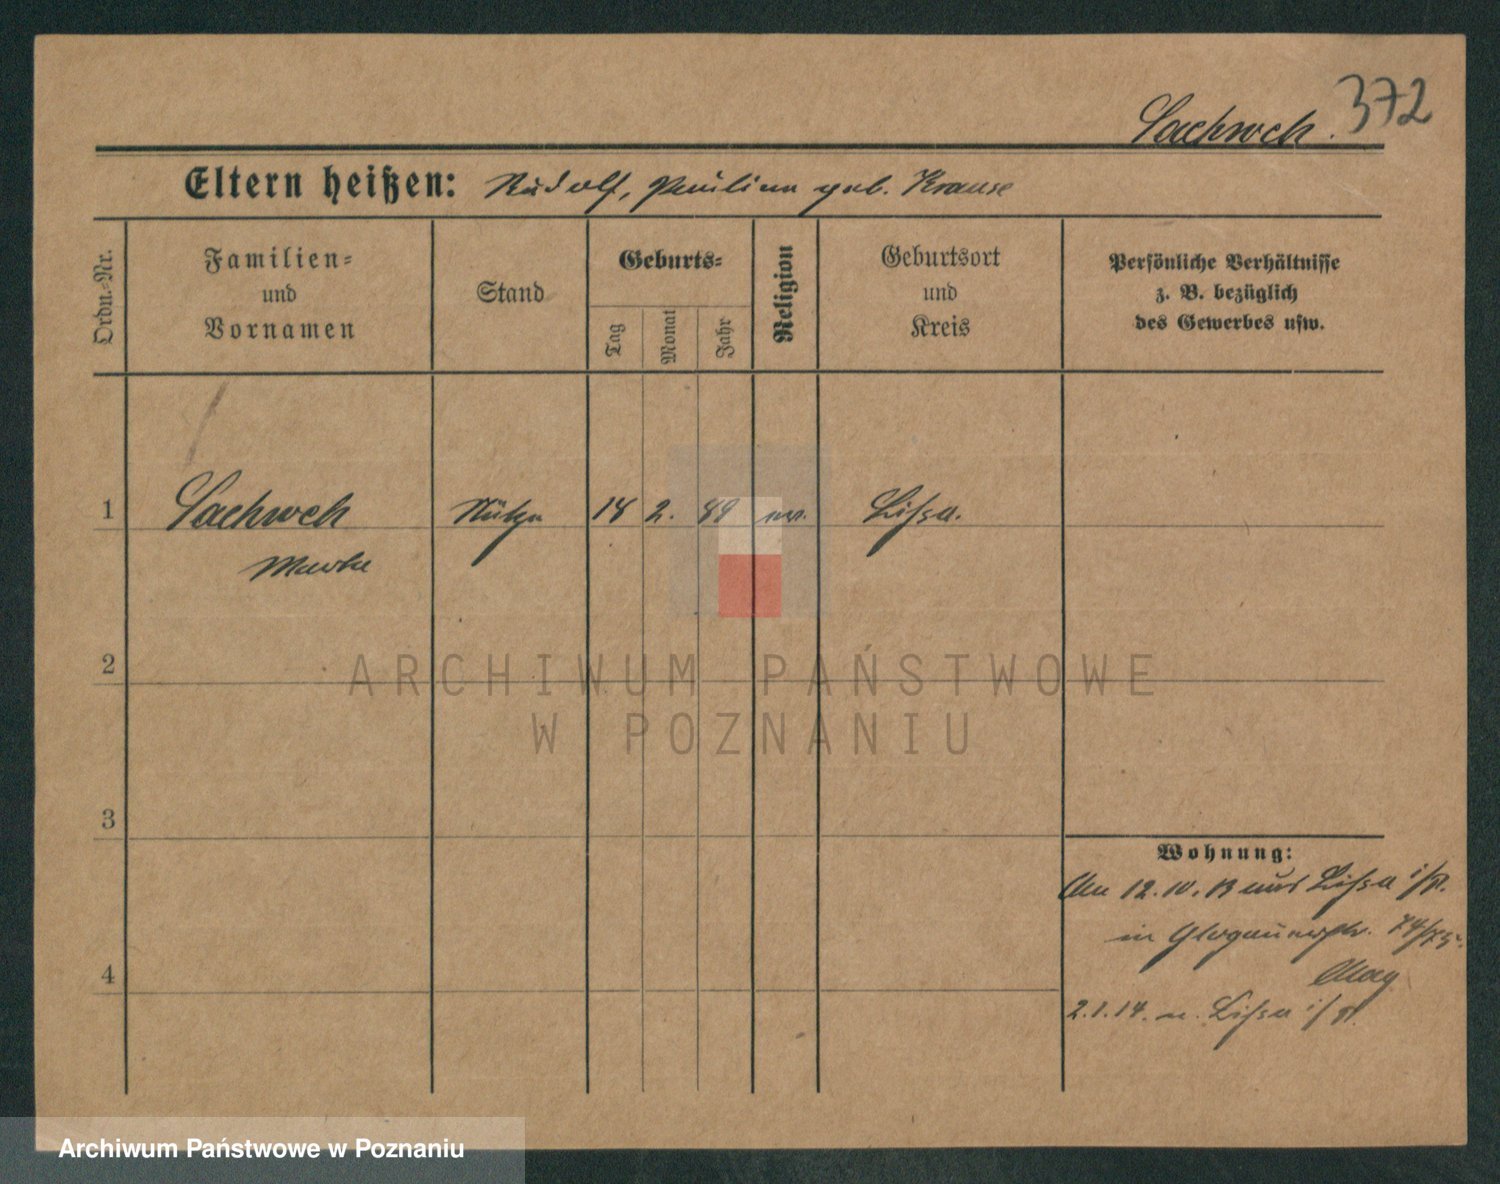 372
Sachweh.
Eltern heißen: Rudolf, Pauline geb. Krause
Ordn.-Nr.
Familien-
und
Vornamen
Stand
Geburts-
Tag
Monat
Jahr
Religion
Geburtsort
und
Kreis
Persönliche Verhältnisse
z. B. bezüglich
des Gewerbes usw.
1 Sachweh Stütze 18 2. 89 ev. Lissa.
2
3
4
Wohnung:
12.10.13 aus Lissa i/P.
in Glogauerstr. 74/75.
2.1.14. n. Lissa i/P.
ARCHIWUM PAŃSTWOWE
W POZNANIU
Archiwum Państwowe w Poznaniu